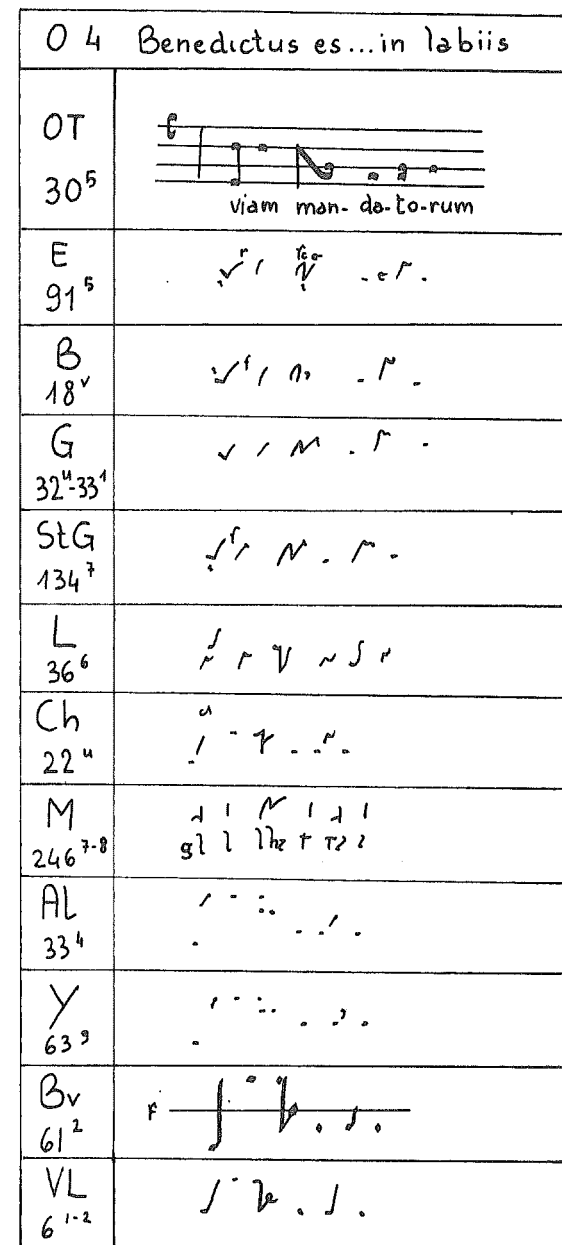 O 4 Benedictus es...in labiis
OT
30⁵
viam man- da-to-rum
E
91⁵
B
18ᵛ
G
32ᵘ-33¹
StG
134⁷
L
36⁶
Ch
22ᵘ
M
246⁷⁻⁸
Al
33⁴
Y
63⁹
Bv
61²
F
VL
6¹⁻²